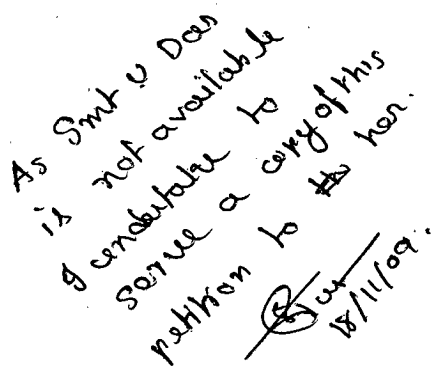 As Smt U Das
is not available
I undertake to
serve a copy of this
petition to her.
18/11/09.